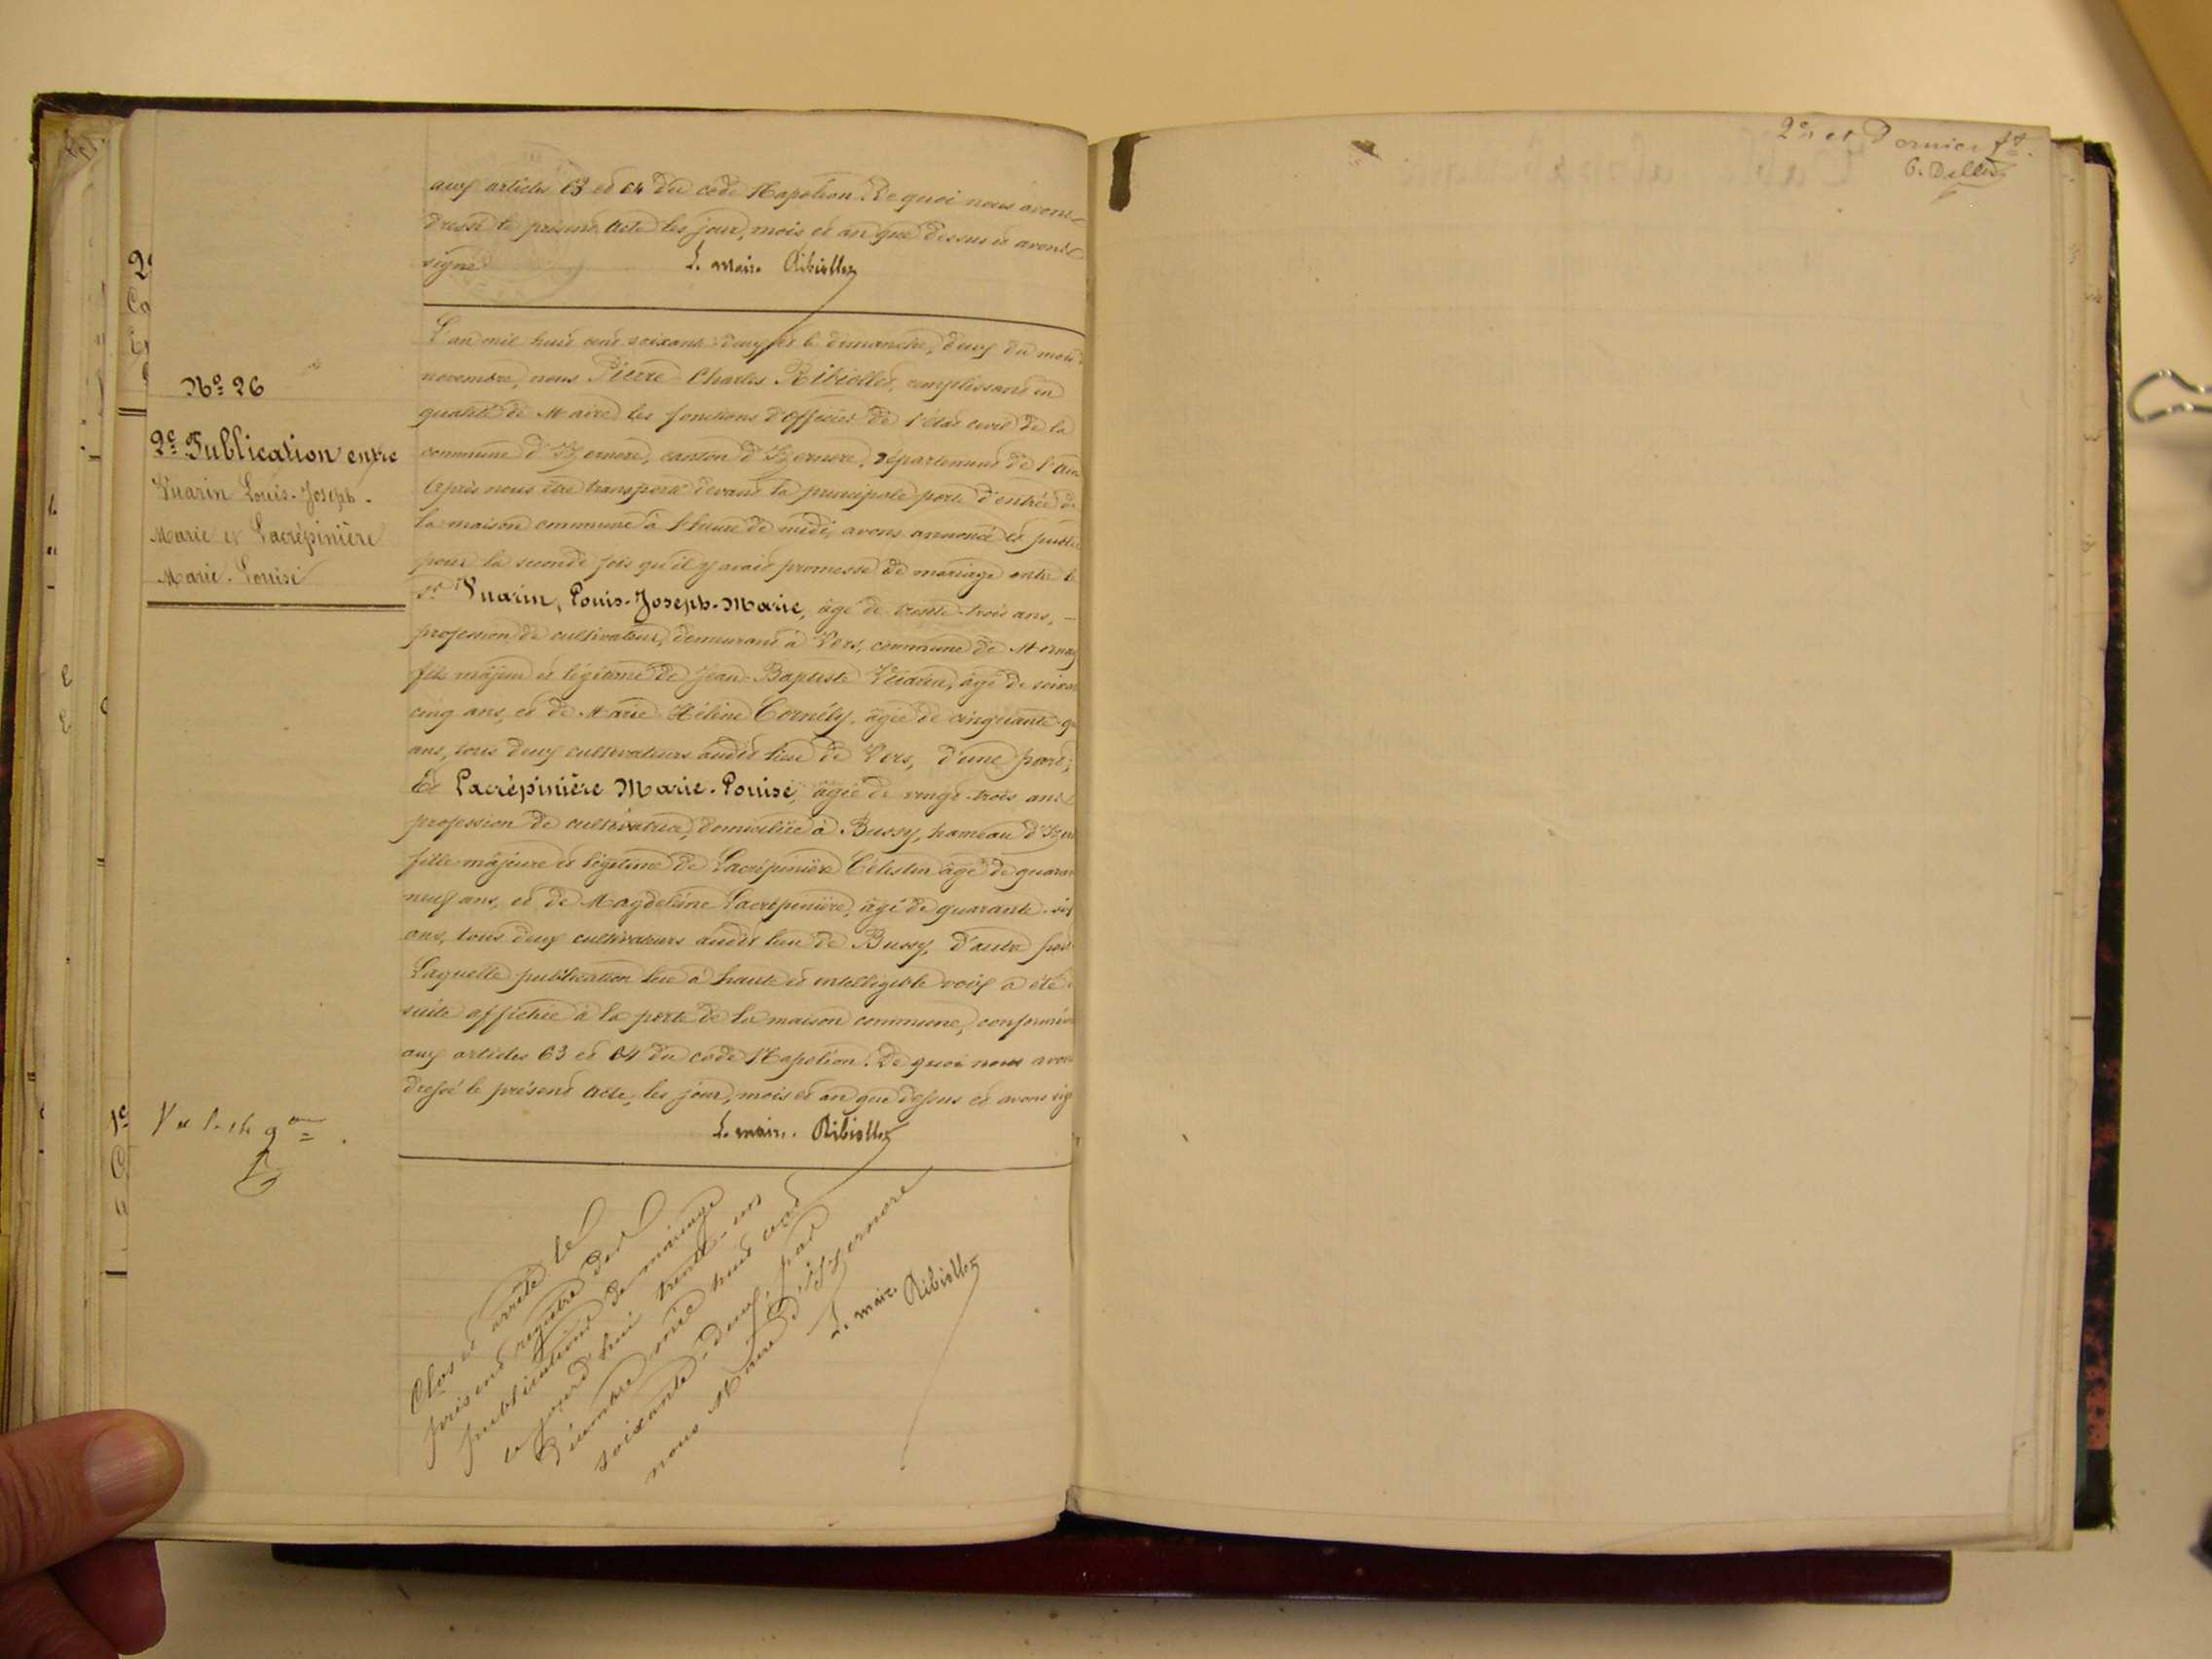 aux articles 63 et 64 du code Napoléon. De quoi nous avons
dressé le présent acte les jour, mois et an que dessus et avons
signé
Le maire Ribiollet
Nº 26
2e Publication entre
Vuarin Louis-Joseph-
Marie et Lacrépinière
Marie-Louise
L'an mil huit cent soixante-deux et le dimanche, deux du mois
novembre, nous Pierre Charles Ribiollet, remplissant en
qualité de Maire les fonctions d'officier de l'état civil de la
commune d'Izernore, canton d'Izernore, département de l'Ain
Après nous être transporté devant la principale porte d'entrée de
la maison commune à l'heure de midi, avons annoncé et publié
pour la seconde fois qu'il y avait promesse de mariage entre le
Sr Vuarin, Louis-Joseph-Marie, âgé de trente-trois ans, -
profession de cultivateur, demeurant à Vers, commune de Mornay
fils majeur et légitime de Jean-Baptiste Vuarin, âgé de soixan
cinq ans, et de Marie Hélène Cornély, âgée de cinquante-q
ans, tous deux cultivateurs audit lieu de Vers, d'une part;
Et Lacrépinière Marie-Louise, âgée de vingt-trois ans
profession de cultivatrice, domiciliée à Bussy, hameau d'Izer
fille majeure et légitime de Lacrépinière Célestin âgé de quaran
neuf ans, et de Magdeleine Lacrépinière, âgé de quarante-six
ans, tous deux cultivateurs audit lieu de Bussy, d'autre part
Laquelle publication lue à haute et intelligible voix a été
suite affichée à la porte de la maison commune, conformém
aux articles 63 et 64 du code Napoléon. De quoi nous avons
dressé le présent acte, les jour, mois et an que dessus et avons sig
Le maire Ribiollet
Clos et arrêté le
présent registre des
publications de mariage
ce jourd'hui trente-un
Décembre mil huit cent
soixante-deux, par
nous Maire d'Izernore
Le maire Ribiollet
2e et Dernier ft.